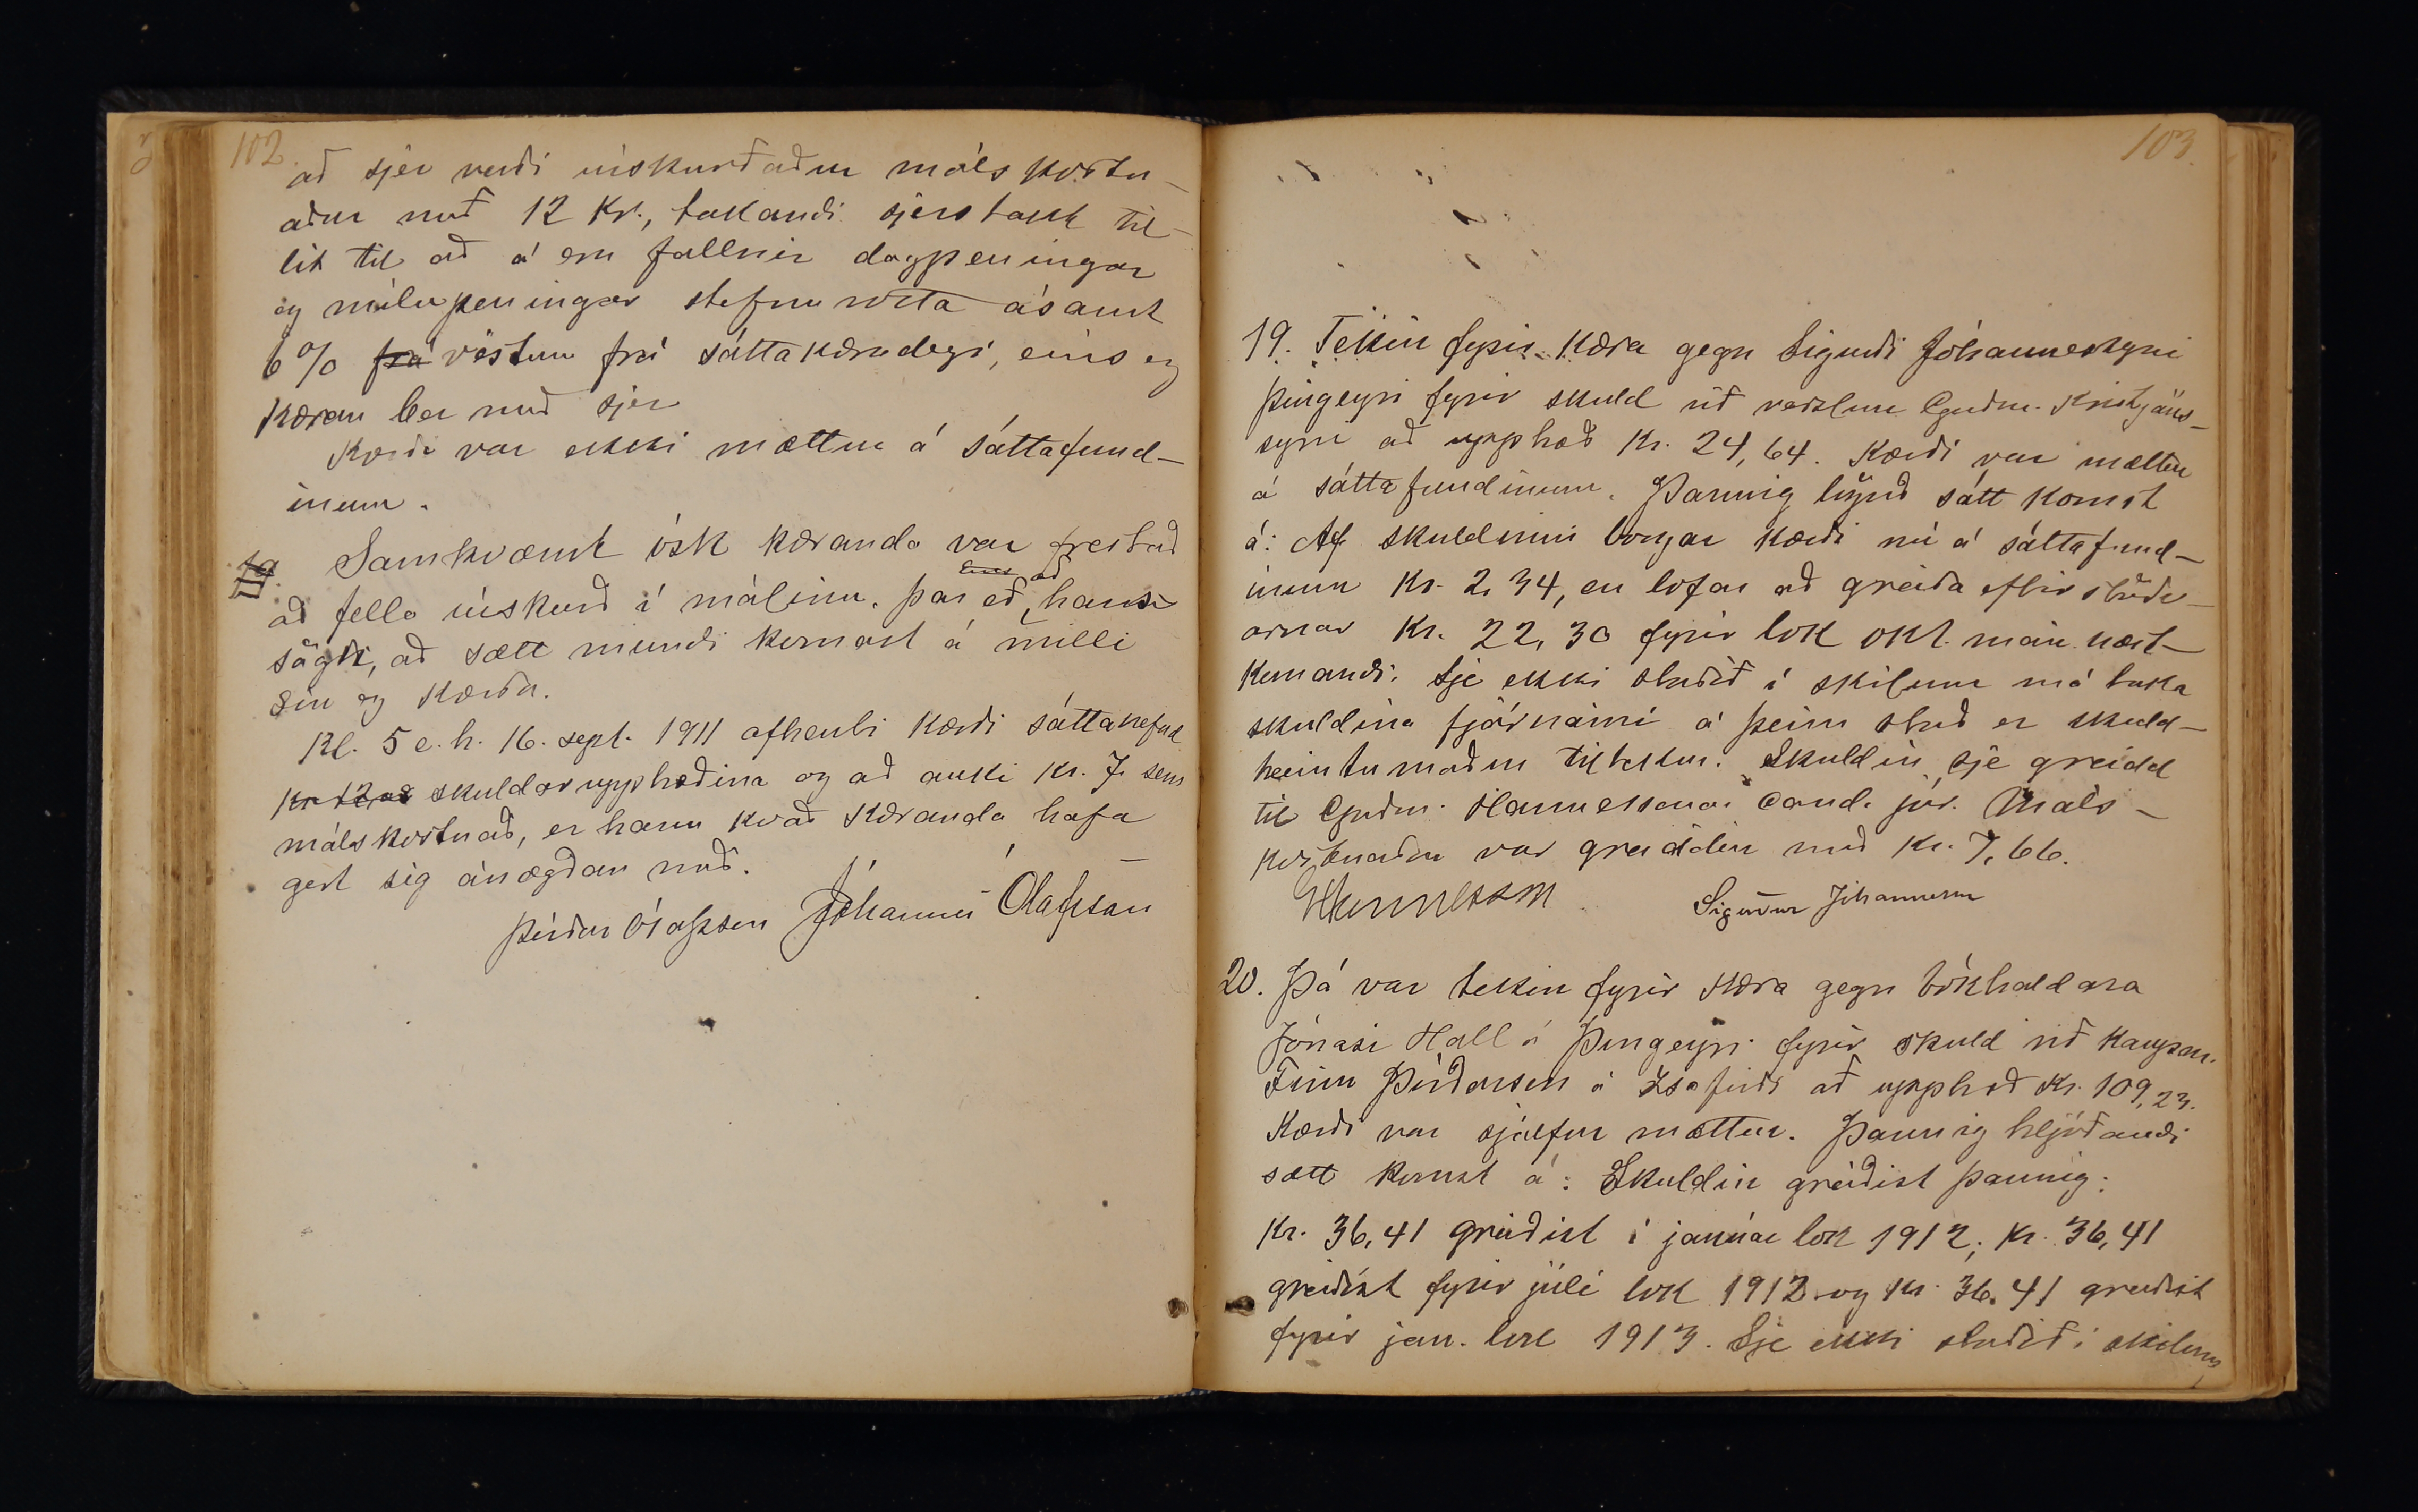 102.
að sjer verði úrskurðaður málskostn-
aður með 12 Kr., takandi sjerstakt til-
lit til að á eru fallnir dagpeningar
og mílupeningar stefnuvotta ásamt
6% frá vöxtum frá sáttakærudegi, eins og
Kæran ber með sjer
Kærði var ekki mættur á sáttafund-
inum.
Samkvæmt ósk kæranda var frestað
að fella úrskurð í málinu. þar eð hann
sagði, að sætt mundi komast á milli
sín og Kærða.
Kl. 5 e. h. 16. sept. 1911 afhenti Kærði sáttanefnd
Kr 12 að skuldarupphæðina og að auki Kr. 7 sem
málskostnað, er hann kvað Kæranda hafa
gert sig ánægðan með.
Þórður Ólafsson Jóhannes Ólafsson
103.
19. Tekin fyrir Kæra gegn Sigurði Jóhannessyni
Þingeyri fyrir skuld við verslun Guðm. Kristjáns-
syni að upphæð Kr. 24,64. Kærði var mættur
á sáttafundinum. Þannig lögnð sátt komst
á: Af skuldinni borgar Kærði nú á sáttafund-
inum Kr. 2,34, en lofar að greiða eftirstöðv-
arnar Kr. 22,30 fyrir lok okt. mán. næst-
komandi. Sje ekki staðið í skilum má taka
skuldina fjárnámi á þeim stað er skuld-
heimtumaður tiltekur. Skuldin sje greidd
til Guðm. Hannessonar cand. júr. Máls-
kostnaður var greiddur með Kr. 7,66.
GHannesson Sigurður Jóhannesson
20. Þá var tekin fyrir Kæra gegn bókhaldara
Jónasi Hall á Þingeyri fyrir skuld við Kaupm.
Finn Þórðarson á Ísafirði að upphæð Kr. 109,23.
Kærði var sjálfur mættur. Þannig hljóðandi
sætt komst á: Skuldin greiðist þannig:
Kr. 36,41 greiðist í janúar lok 1912; Kr. 36,41
greiðist fyrir júlí lok 1912 og Kr. 36,41 greiðist
fyrir jan. lok 1913. Sje ekki staðið í skilum,